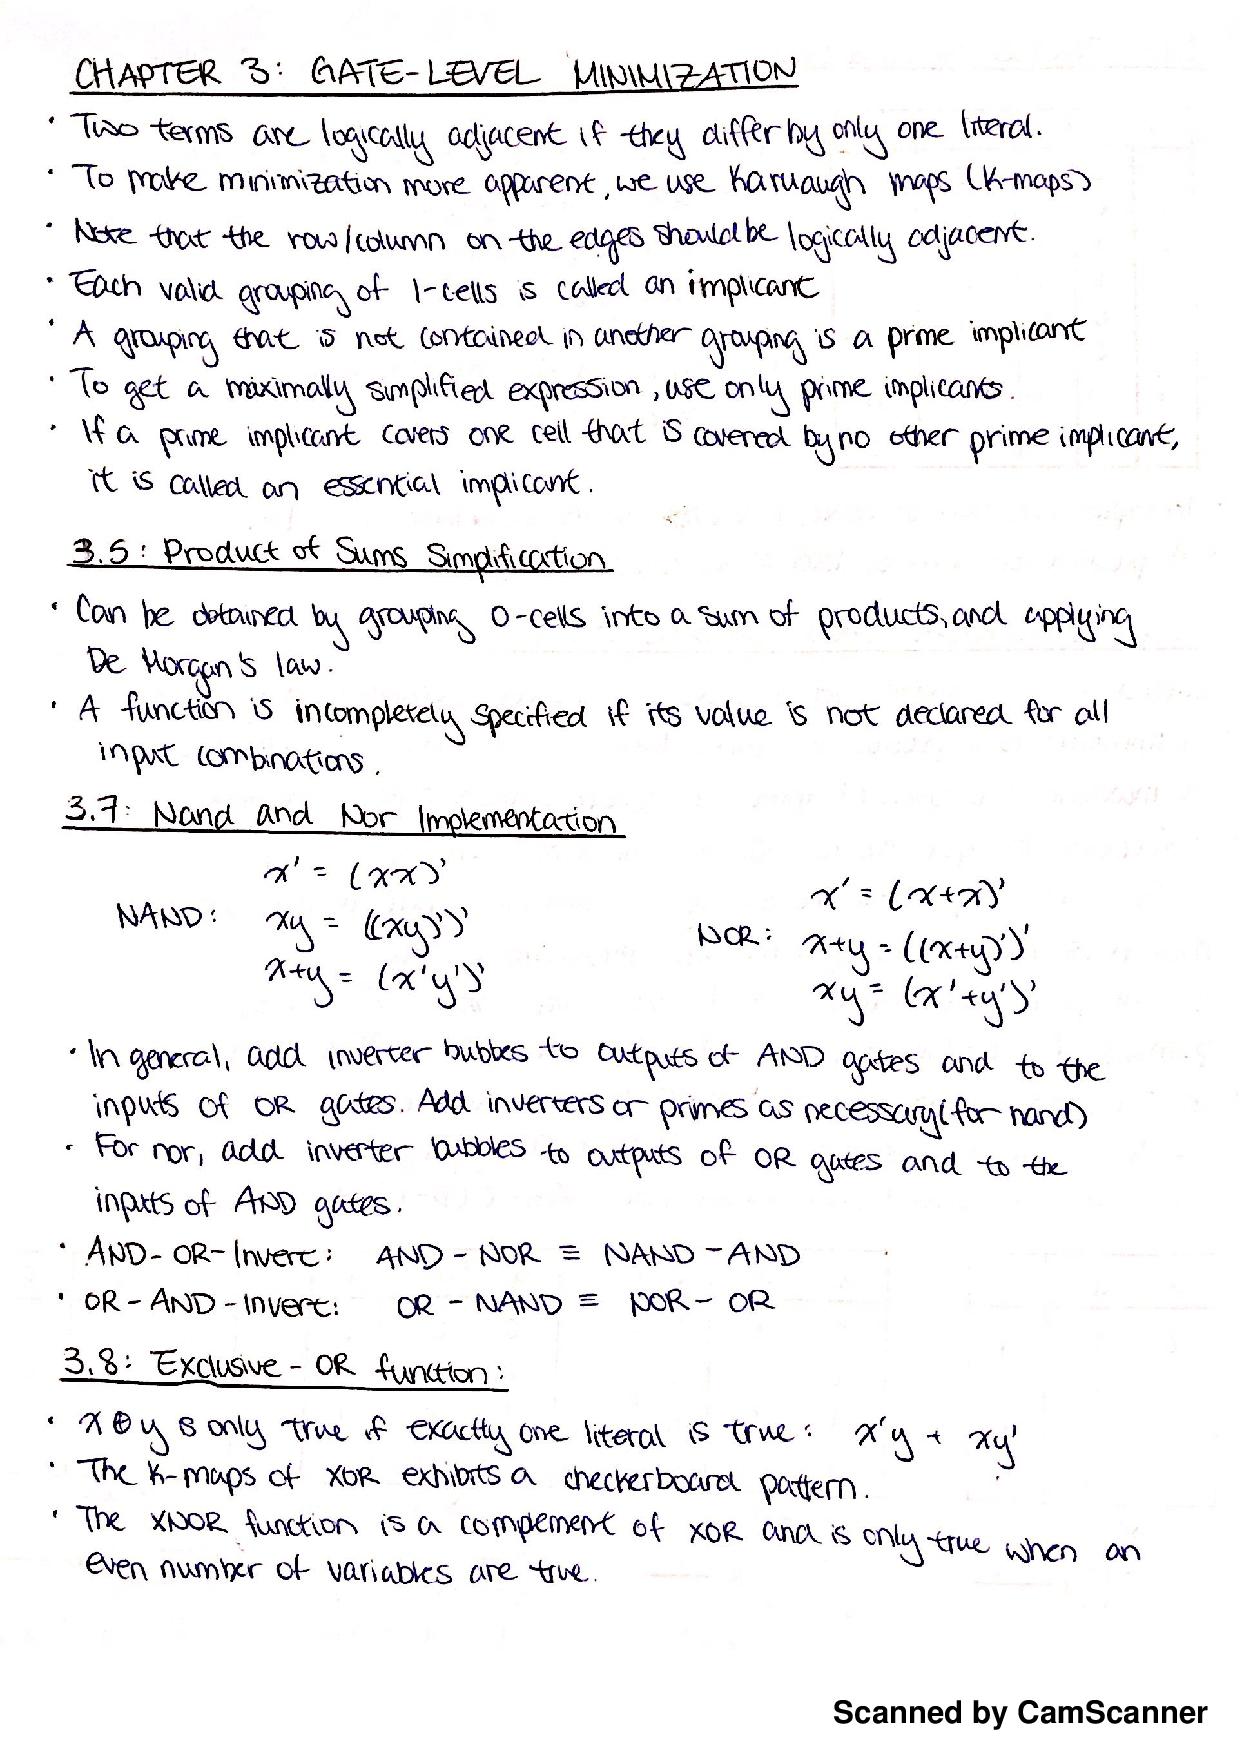 CHAPTER 3: GATE-LEVEL MINIMIZATION
· Two terms are logically adjacent if they differ by only one literal.
· To make minimization more apparent, we use Karnaugh maps (K-maps)
· Note that the row/column on the edges should be logically adjacent.
· Each valid grouping of 1-cells is called an implicant
· A grouping that is not contained in another grouping is a prime implicant
· To get a maximally simplified expression, use only prime implicants.
· If a prime implicant covers one cell that is covered by no other prime implicant,
it is called an essential implicant.
3.5: Product of Sums Simplification
· Can be obtained by grouping 0-cells into a sum of products, and applying
De Morgan's law.
· A function is incompletely specified if its value is not declared for all
input combinations.
3.7: Nand and Nor Implementation
NAND:
x' = (xx)'
xy = ((xy)')'
x+y = (x'y')'
NOR:
x' = (x+x)'
x+y = ((x+y)')'
xy = (x'+y')'
· In general, add inverter bubbes to outputs of AND gates and to the
inputs of OR gates. Add inverters or primes as necessary (for nand)
· For nor, add inverter bubbles to outputs of OR gates and to the
inputs of AND gates.
· AND-OR-Invert: AND-NOR ≡ NAND-AND
· OR-AND-Invert: OR-NAND ≡ NOR-OR
3.8: Exclusive-OR function:
· x⊕y is only true if exactly one literal is true: x'y + xy'
· The K-maps of XOR exhibits a checkerboard pattern.
· The XNOR function is a compement of XOR and is only true when an
even number of variables are true.
Scanned by CamScanner